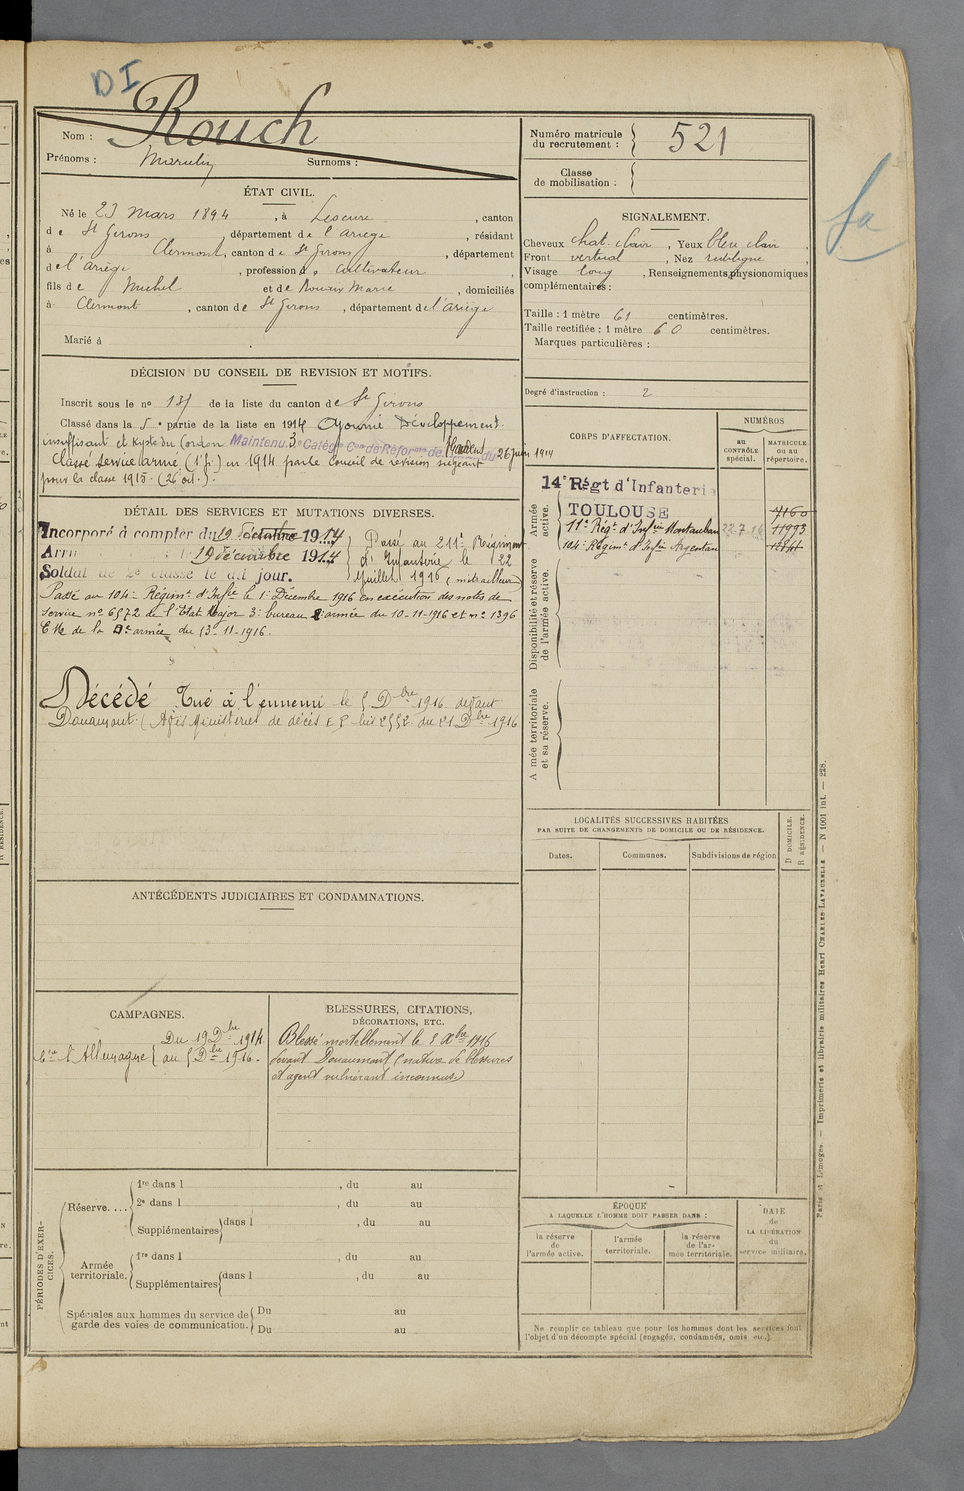 DI
Nom : Rouch
Prénoms : Surnoms :
ÉTAT CIVIL.
Né le 23 mars 1894, à Lescure, canton
de St Girons, département de l'ariège, résidant
à Clermont, canton de St Girons, département
de l'ariège, profession de cultivateur
fils de Michel et de Rouaix Marie, domiciliés
à Clermont, canton de St Girons, département de l'ariège
Marié à
DÉCISION DU CONSEIL DE REVISION ET MOTIFS.
Inscrit sous le no de la liste du canton de St Girons
Classé dans la 5e partie de la liste en 1914 Ajourné Développement
insuffisant et Kyste du Cordon Maintenu 3e Catég Con de Réforme de du 26 juin 1914
Classé service armé (1e p.) en 1914 par le Conseil de revision siégeant
pour la classe 1915 (26 oct.).
DÉTAIL DES SERVICES ET MUTATIONS DIVERSES.
Incorporé à compter du 19 1914
le 19 décembre 1914
Soldat de 2e classe le dit jour.
Passé au 211e Régiment
d'Infanterie le 22
Juillet 1916 (mitrailleur)
Passé au 104e Régimt d'Infie le 1er Décembre 1916 en exécution des notes de
service no 6572 de l'Etat Major 3e bureau 2e armée du 10-11-1916 et no 1396
de la armée du 13-11-1916.
Décédé Tué à l'ennemi le 5 Dbre 1916 devant
Douaumont. (Avis Ministériel de décès du 21 Dbre 1916
ANTÉCÉDENTS JUDICIAIRES ET CONDAMNATIONS.
CAMPAGNES.
Ctre l'Allemagne { Du 19 Dbre 1914
au 5 Dbre 1916.
BLESSURES, CITATIONS,
DÉCORATIONS, ETC.
Blessé mortellement le 5 Xbre 1916
devant Douaumont (nature de blessures
et agent vulnérant inconnus)
PÉRIODES D'EXERCICES.
Réserve.... 1re dans l , du au
2e dans l , du au
Supplémentaires dans l , du au
Armée territoriale. 1re dans l , du au
Supplémentaires dans l , du au
Spéciales aux hommes du service de
garde des voies de communication. Du au
Du au
Numéro matricule
du recrutement : 521
Classe
de mobilisation :
SIGNALEMENT.
Cheveux chat. clair, Yeux bleu clair,
Front vertical, Nez rectiligne,
Visage long, Renseignements physionomiques
complémentaires :
Taille : 1 mètre 61 centimètres.
Taille rectifiée : 1 mètre 60 centimètres.
Marques particulières :
Degré d'instruction : 2
CORPS D'AFFECTATION.
NUMÉROS
au
CONTRÔLE
spécial.
MATRICULE
ou au
répertoire.
Armée
active.
14e Régt d'Infanterie
TOULOUSE 7160
11e Régt d'Infie Montauban 22.7.16 11993
104e Régimt d'Infie Argentan
Disponibilité et réserve
de l'armée active.
Armée territoriale
et sa réserve.
LOCALITÉS SUCCESSIVES HABITÉES
PAR SUITE DE CHANGEMENTS DE DOMICILE OU DE RÉSIDENCE.
Dates. Communes. Subdivisions de région
D DOMICILE.
R RÉSIDENCE.
ÉPOQUE
A LAQUELLE L'HOMME DOIT PASSER DANS :
la réserve
de
l'armée active.
l'armée
territoriale.
la réserve
de l'ar-
mée territoriale.
DATE
de
LA LIBÉRATION
du
service militaire.
Ne remplir ce tableau que pour les hommes dont les services font
l'objet d'un décompte spécial (engagés, condamnés, omis etc.)
Paris et Limoges. — Imprimerie et librairie militaires Henri CHARLES-LAVAUZELLE — N 1001 int. — 228.